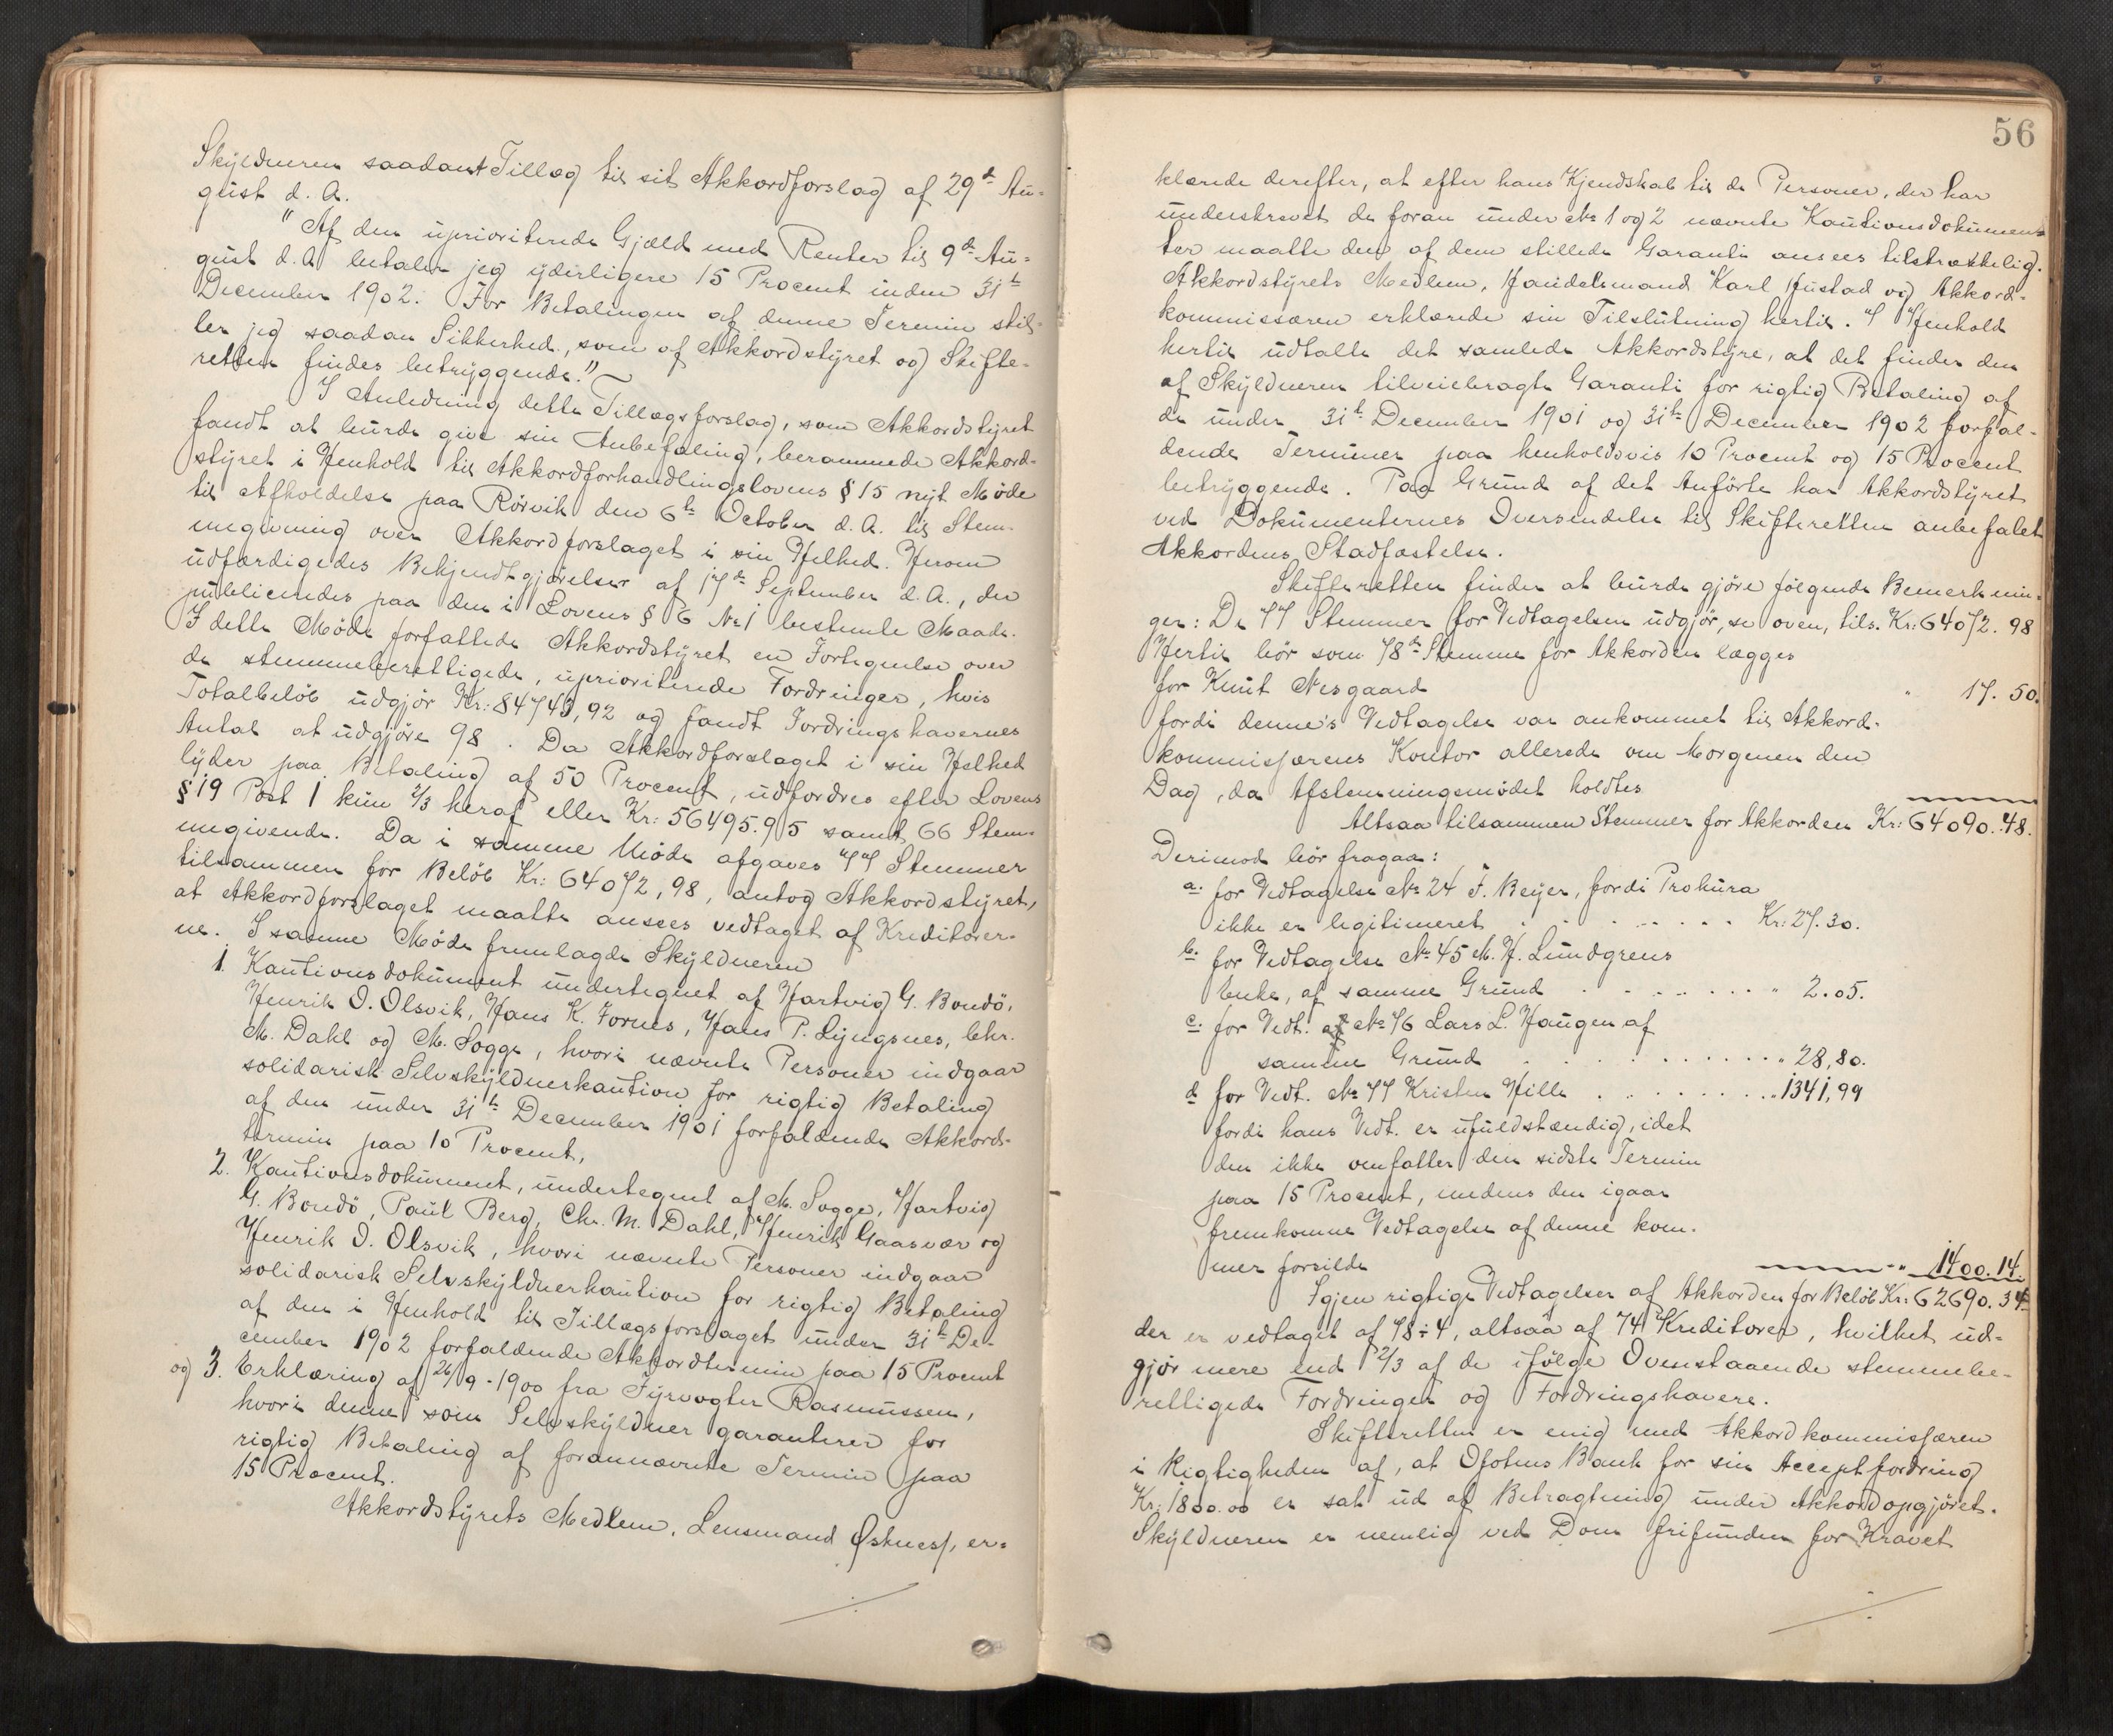 Skyldneren saadant Tillæg til sit Akkordforslag af 29de Au=
gust d. A.
"Af den uprioriterede Gjæld med Renter til 9de Au=
gust d. A. betaler jeg yderligere 15 Procent inden 31te
December 1902. For Betalingen af denne Termin stil=
ler jeg saadan Sikkerhed, som af Akkordstyret og Skifte-
retten findes betryggende."
I Anledning dette Tillægsforslag, som Akkordstyret
fandt at burde give sin Anbefaling, berammede Akkord-
styret i Henhold til Akkordforhandlingslovens § 15 nyt Møde
til Afholdelse paa Rörvik den 6te October d. A. til Stem-
megivning over Akkordforslaget i sin Helhed. Herom
udfærdigedes Bekjendtgjørelser af 17de September d. A., der
publiceredes paa den i Lovens § 6 No 1 bestemte Maade.
I dette Møde forfattede Akkordstyret en Fortegnelse over
de stemmeberettigede, uprioriterede Fordringer, hvis
Totalbeløb udgjør Kr: 84743,92 og fandt Fordringshavernes
Antal at udgjøre 98. Da Akkordforslaget i sin Helhed
lyder paa Betaling af 50 Procent, udfordres efter Lovens
§ 19 Post 1 kun 2/3 heraf eller Kr: 56495.95 samt 66 Stem=
megivende. Da i samme Møde afgaves 77 Stemmer
tilsammen for Beløb Kr: 64072,98, antog Akkordstyret,
at Akkordforslaget maatte ansees vedtaget af Kreditorer-
ne. I samme Møde fremlagde Skyldneren
1. Kautionsdokument undertegnet af Hartvig G. Bondö,
Henrik O. Olsvik, Hans K. Fornes, Hans P. Lyngsnes, Chr.
M. Dahl og M. Sogge, hvori nævnte Personer indgaar
solidarisk Selvskyldnerkaution for rigtig Betaling
af den under 31te December 1901 forfaldende Akkords-
termin paa 10 Procent,
2. Kautionsdokument, undertegnet af M. Sogge, Hartvig
G. Bondö, Paul Berg, Chr. M. Dahl, Henrik Gaasvær og
Henrik O. Olsvik, hvori nævnte Personer indgaar
solidarisk Selvskyldnerkaution for rigtig Betaling
af den i Henhold til Tillægsforslaget under 31te De-
cember 1902 forfaldende Akkordtermin paa 15 Procent
og 3. Erklæring af 26/9 - 1900 fra Fyrvogter Rasmussen,
hvori denne som Selvskyldner garanterer for
rigtig Betaling af forannævnte Termin paa
15 Procent.
Akkordstyrets Medlem, Lensmand Østnesf, er=
56
klærede derefter, at efter hans Kjendskab til de Personer, der har
underskrevet de foran under No 1 og 2 nævnte Kautionsdokumen=
ter maatte den af dem stillede Garanti ansees tilstrækkelig.
Akkordstyrets Medlem, Handelsmand Karl Hustad og Akkord-
kommissæren erklærede sin Tilslutning hertil. I Henhold
hertil udtalte det samlede Akkordstyre, at det finder den
af Skyldneren tilveiebragte Garanti for rigtig Betaling af
de under 31te December 1901 og 31te December 1902 forfal-
dende Terminer paa henholdsvis 10 Procent og 15 Procent
betryggende. Paa Grund af det Anførte har Akkordstyret
ved Dokumenternes Oversendelse til Skifteretten anbefalet
Akkordens Stadfæstelse.
Skifteretten finder at burde gjøre følgende Bemerknin-
ger: De 77 Stemmer for Vedtagelsen udgjør, se oven, tils. Kr: 64072.98
Hertil bör som 78de Stemme for Akkorden lægges
for Knut Nesgaard " 17.50.
fordi denne's Vedtagelse var ankommet til Akkord-
kommissærens Kontor allerede om Morgenen den
Dag, da Afstemningsmødet holdtes
Altsaa tilsammen Stemmer for Akkorden Kr: 64090.48.
Derimod bör fragaa:
a. for Vedtagelse No 24 F. Beyer, fordi Prokura
ikke er legitimeret . . . . . . Kr: 27.30.
b. for Vedtagelse No 45 M. H. Lundgrens
Enke, af samme Grund . . . . . . " 2.05.
c. for Vedt. af No 76 Lars L. Haugen af
samme Grund . . . . . . " 28,80.
d for Vedt. No 77 Kristen Hille . . . . . . " 1341,99
fordi hans Vedt. er ufuldstændig, idet
den ikke omfatter den sidste Termin
paa 15 Procent, medens den igaar
fremkomne Vedtagelse af denne kom-
mer forsilde " 1400.14.
Igjen rigtige Vedtagelser af Akkorden for Beløb Kr: 62690.34
der er vedtaget af 78÷4, altsaa af 74 Kreditorer, hvilket ud-
gjør mere end 2/3 af de ifølge Ovenstaaende stemmebe-
rettigede Fordringer og Fordringshavere.
Skifteretten er enig med Akkordkommissæren
i Rigtigheden af, at Ofotens Bank for sin Acceptfordring
Kr: 1800.00 er sat ud af Betragtning under Akkordopgjøret.
Skyldneren er nemlig ved Dom frifunden for Kravet